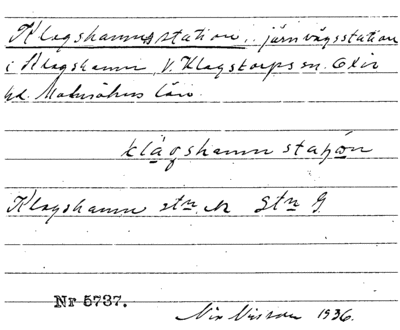 Klagshamns station, järnvägsstation
i Klagshamn, V. Klagstorps sn. Oxie
hd. Malmöhus län.
klágshamn station
Klagshamn stn. Stn G.
Nr 5737.
Nils Nilsson 1936.